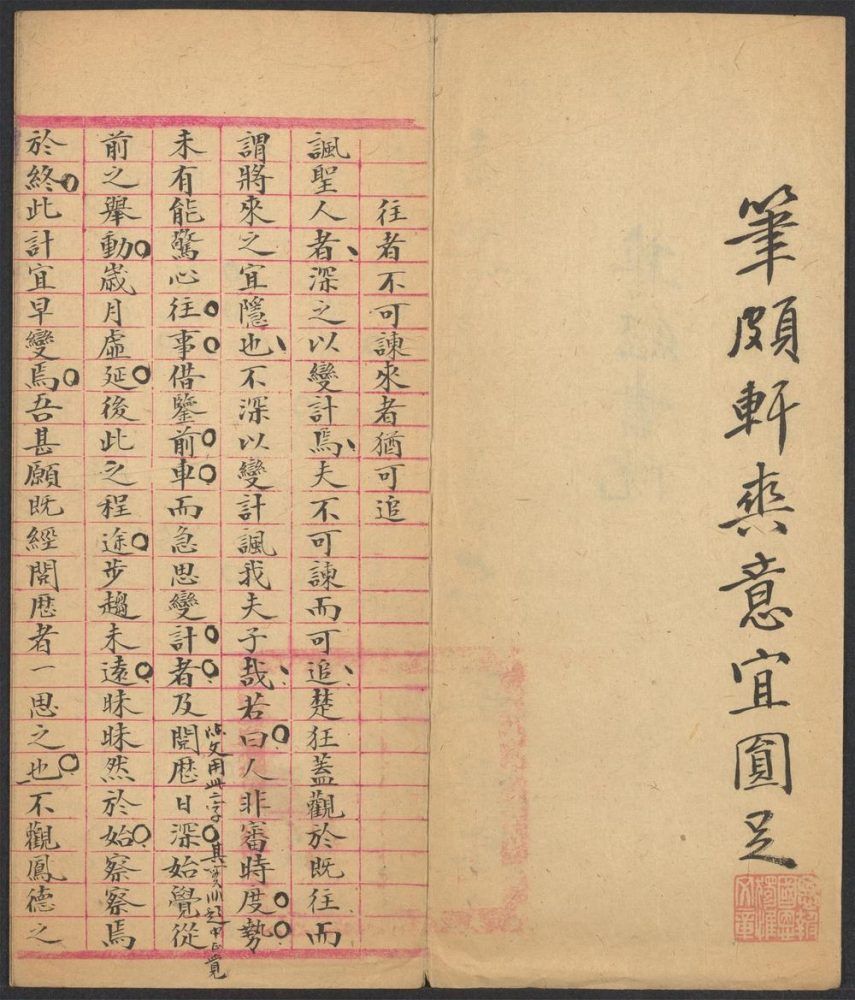 筆頗軒爽意宜圓足
往者不可諫來者猶可追
諷聖人者深之以變計焉夫不可諫而可追楚狂蓋觀於既往而
謂將來之宜隱也不深以變計諷我夫子哉若曰人非審時度勢
未有能驚心往事借鑒前車而急思變計者及閱歷日深始覺從
前之舉動歲月虛延後此之程途步趨未遠昧昧然於始察察焉
於終此計宜早變焉吾甚願既經閱歷者一思之也不觀鳳德之